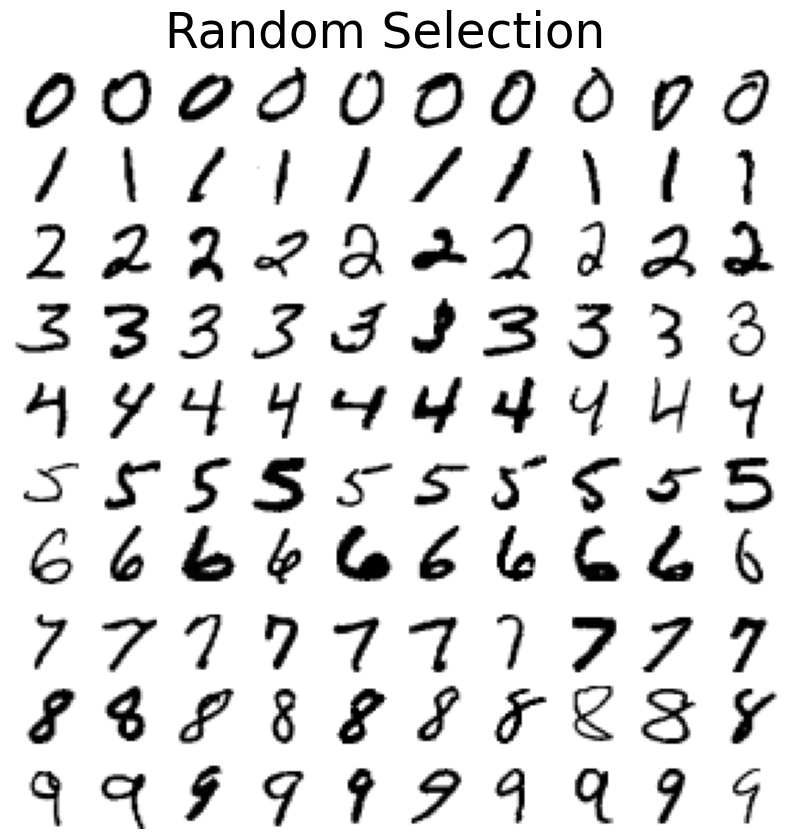 Random Selection
0 0 0 0 0 0 0 0 0 0
1 1 1 1 1 1 1 1 1 1
2 2 2 2 2 2 2 2 2 2
3 3 3 3 3 3 3 3 3 3
4 4 4 4 4 4 4 4 4 4
5 5 5 5 5 5 5 5 5 5
6 6 6 6 6 6 6 6 6 6
7 7 7 7 7 7 7 7 7 7
8 8 8 8 8 8 8 8 8 8
9 9 9 9 9 9 9 9 9 9